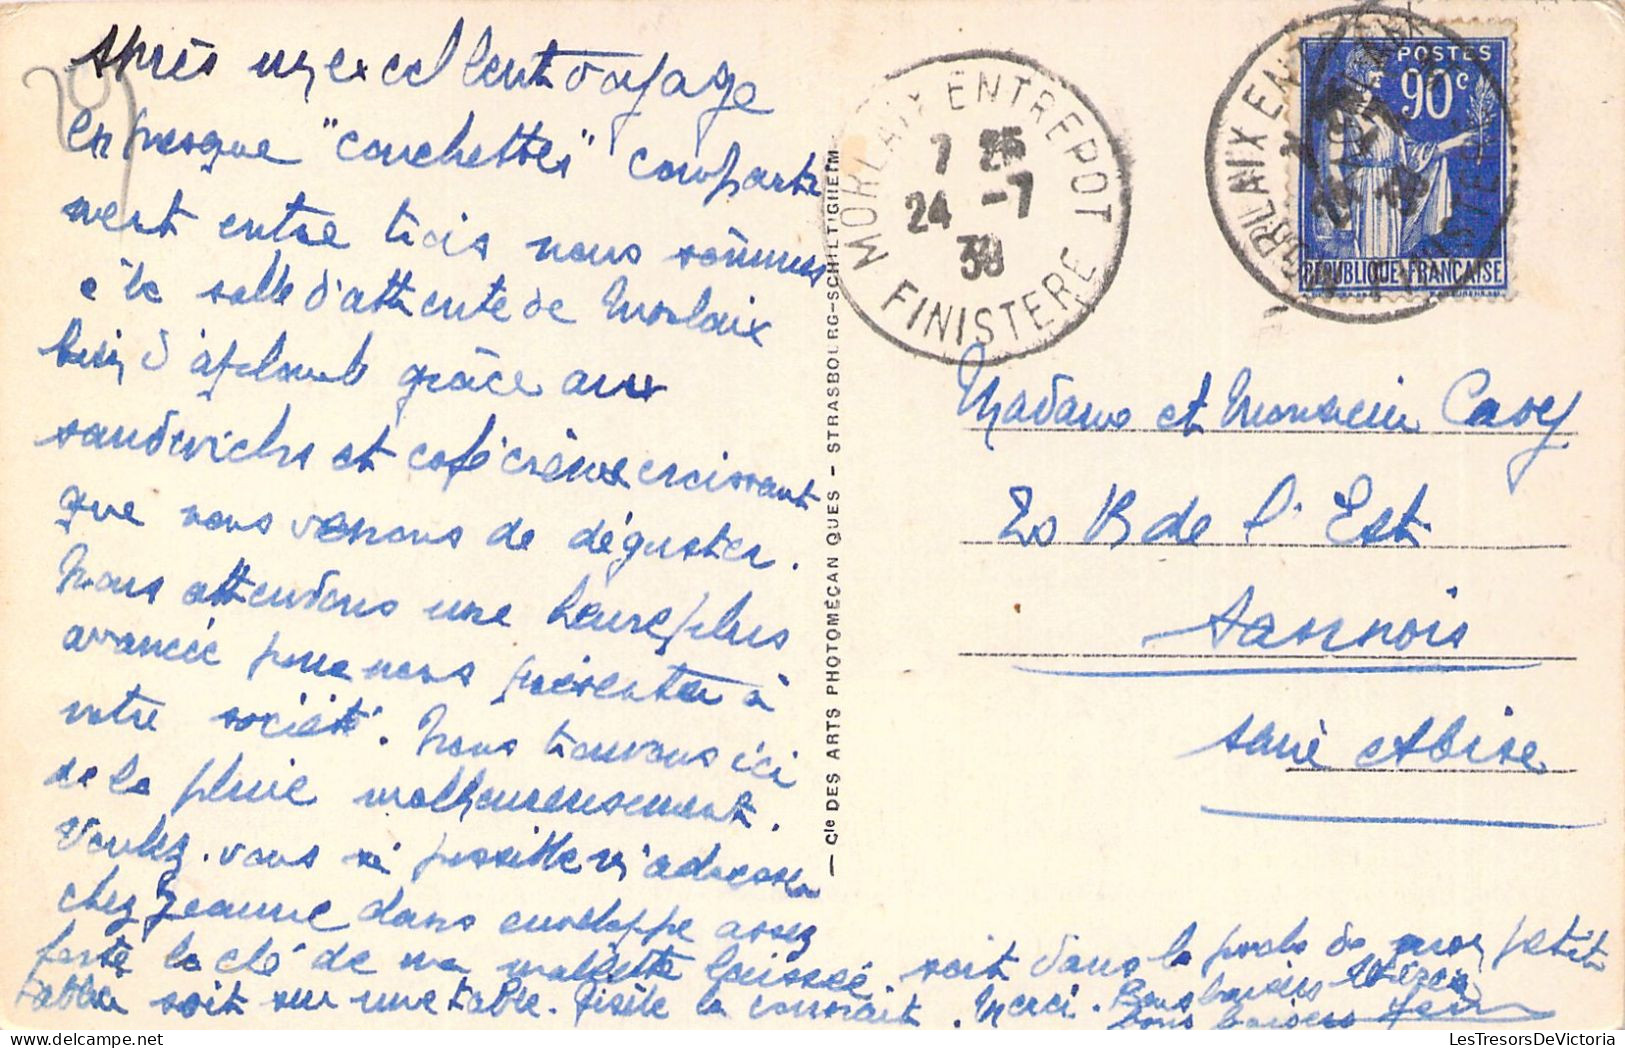 Après un excellent voyage
en presque "couchettes" comparti
ment entre trois nous sommes
à la salle d'attente de Morlaix
bien d'aplomb grâce aux
sandwichs et café crème croissant
que nous venons de déguster.
Nous attendons une heure plus
avancée pour nous présenter à
votre société. Nous trouvons ici
de la pluie malheureusement.
Voulez-vous si possible m'adresser
chez Jeanne dans enveloppe assez
forte la clé de ma mallette laissée soit dans la poche de mon petit
tablier soit sur une table. Gisèle la connait. Merci. Bons baisers
bons baisers
Cie DES ARTS PHOTOMÉCAN QUES - STRASBOURG-SCHILTIGHEIM
MORLAIX ENTREPOT
7 25
24 -7
38
FINISTERE
POSTES
90c
REPUBLIQUE FRANÇAISE
MORLAIX ENTREPOT
FINISTERE
Madame et Monsieur Casey
20 B de l'Est
Sannois
Seine et Oise
LesTresorsDeVictoria